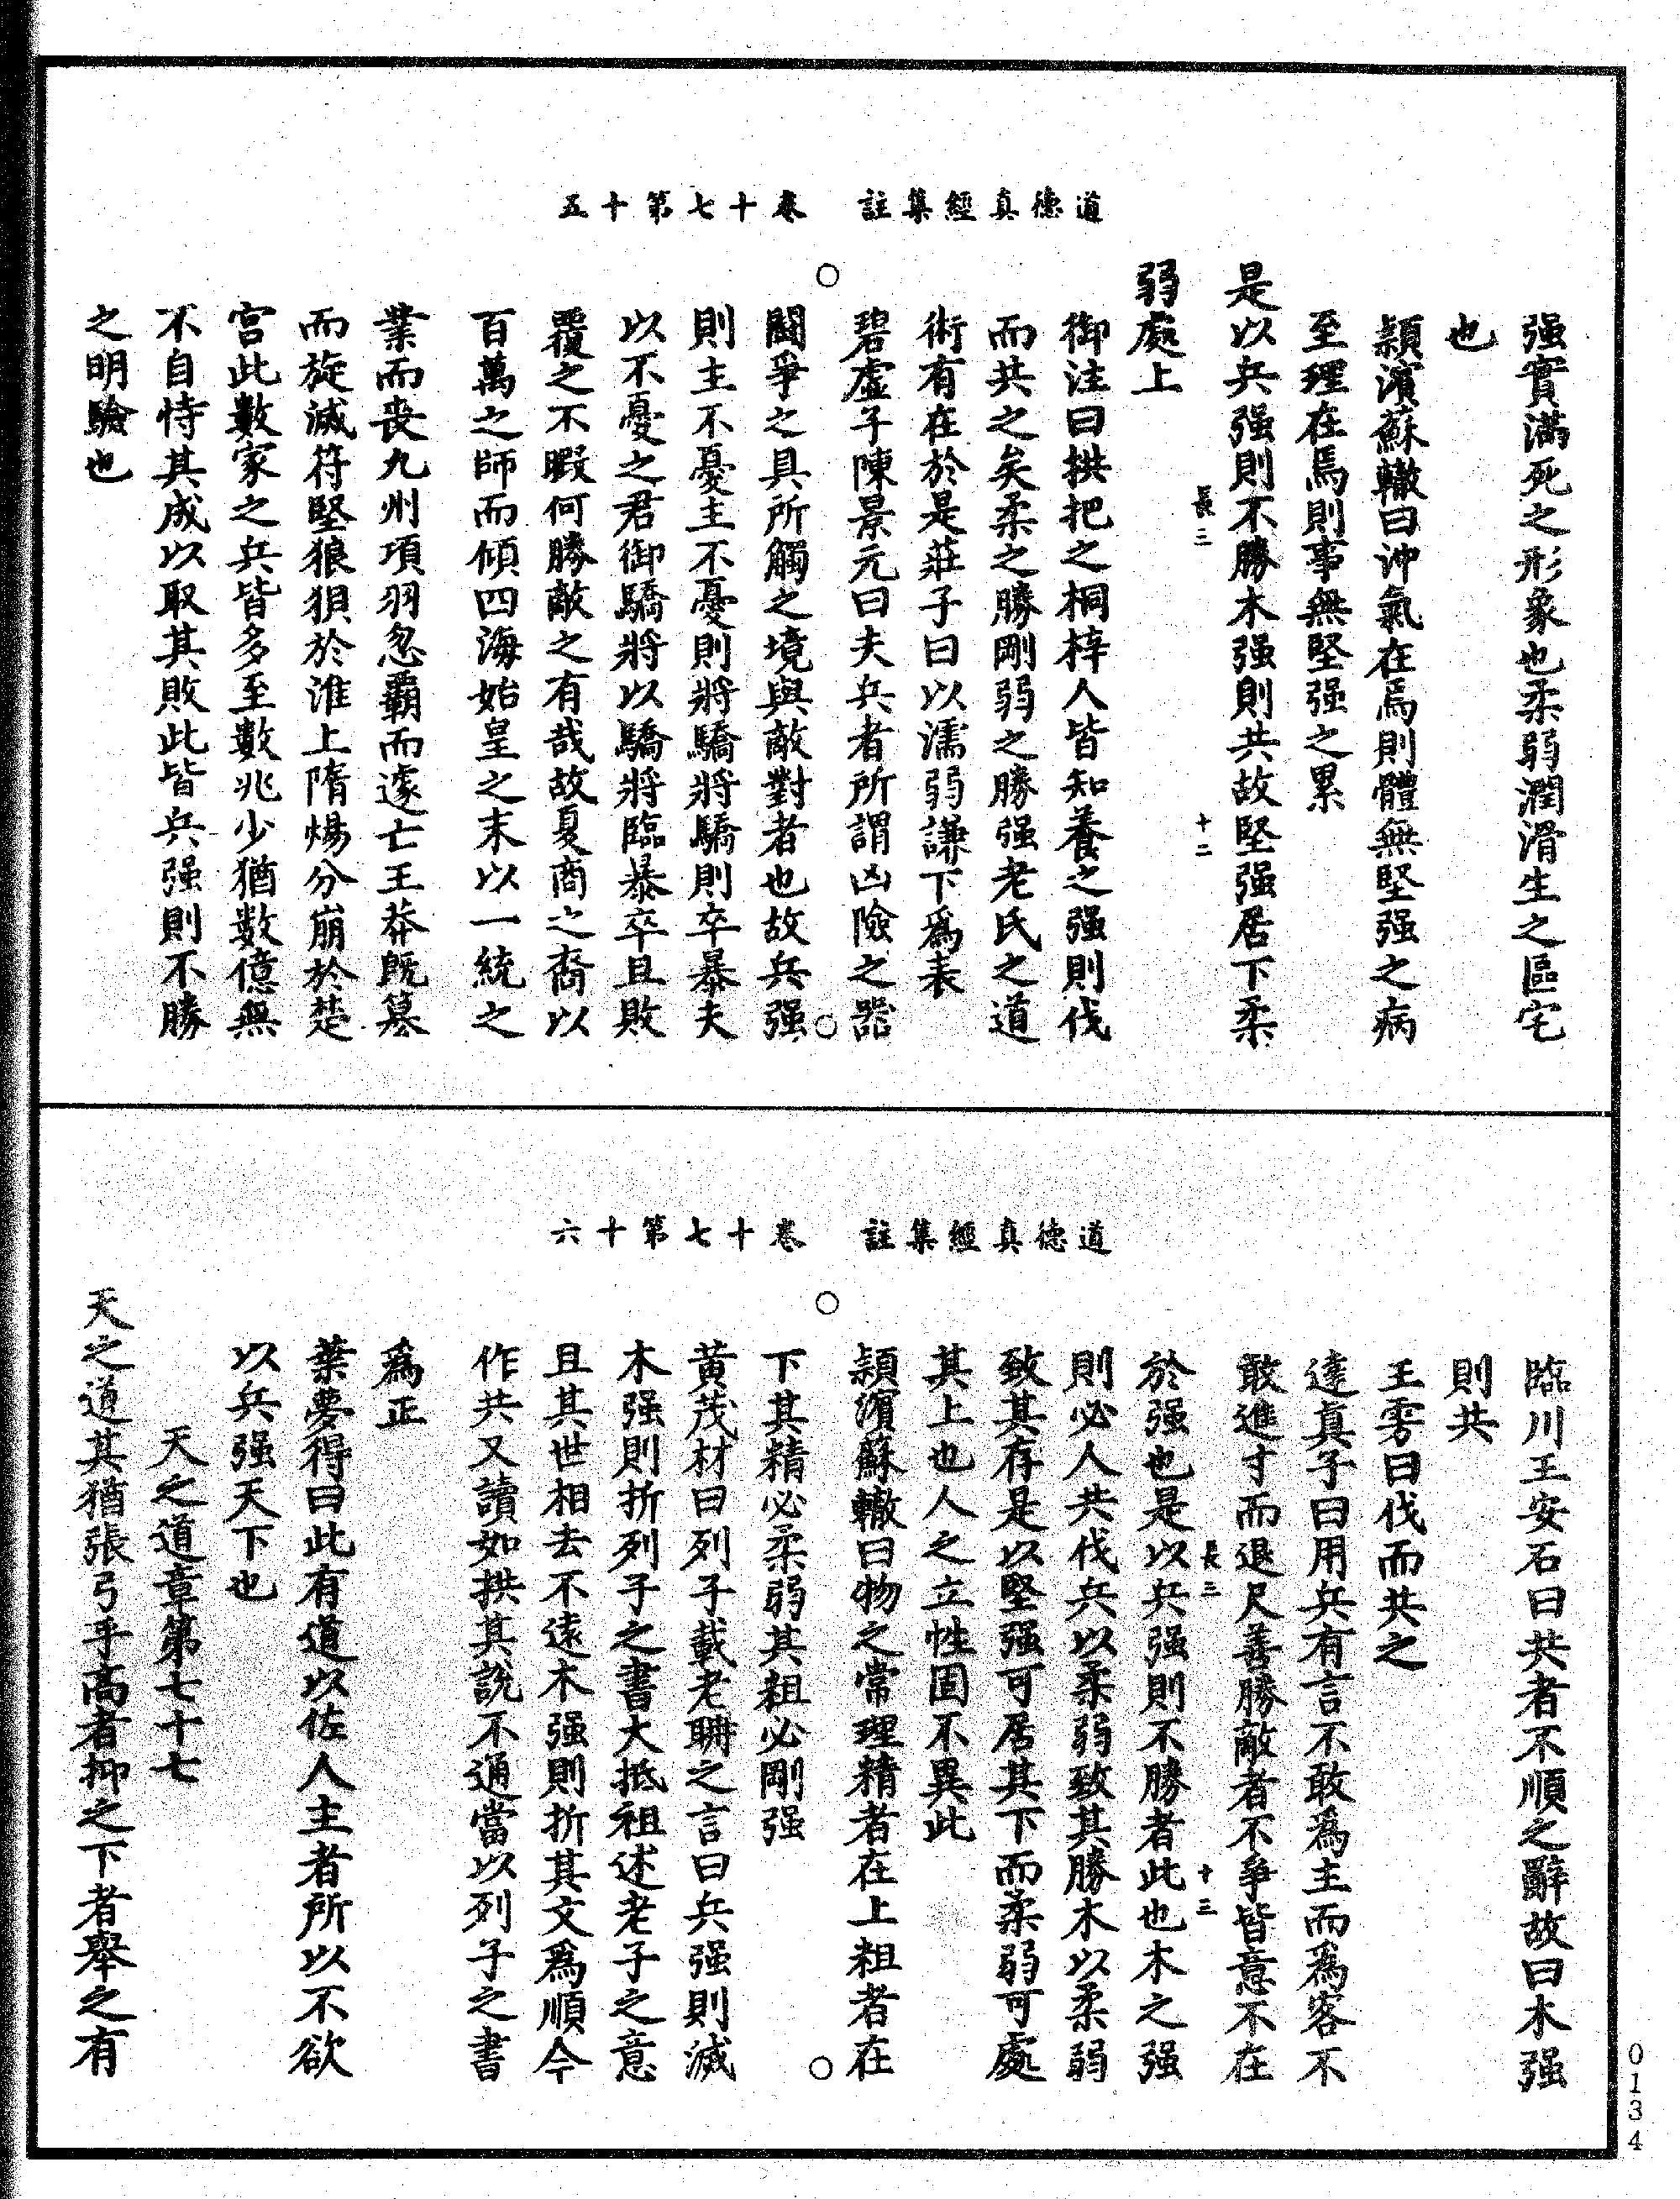 道德真經集註　卷十七第十五
强實滿死之形象也柔弱潤滑生之區宅
也
潁濱蘇轍曰沖氣在焉則體無堅强之病
至理在焉則事無堅强之累
是以兵强則不勝木强則共故堅强居下柔
長三　十二
弱處上
御注曰拱把之桐梓人皆知養之强則伐
而共之矣柔之勝剛弱之勝强老氏之道
術有在於是莊子曰以濡弱謙下爲表
碧虛子陳景元曰夫兵者所謂凶險之器
○　○
鬭爭之具所觸之境與敵對者也故兵强
則主不憂主不憂則將驕將驕則卒暴夫
以不憂之君御驕將以驕將臨暴卒且敗
覆之不暇何勝敵之有哉故夏商之裔以
百萬之師而傾四海始皇之末以一統之
業而喪九州項羽忽霸而遽亡王莽既篡
而旋滅符堅狼狽於淮上隋煬分崩於楚
宮此數家之兵皆多至數兆少猶數億無
不自恃其成以取其敗此皆兵强則不勝
之明驗也
道德真經集註　卷十七第十六
臨川王安石曰共者不順之辭故曰木强
則共
王雱曰伐而共之
達真子曰用兵有言不敢爲主而爲客不
敢進寸而退尺善勝敵者不爭皆意不在
長三　十三
於强也是以兵强則不勝者此也木之强
則必人共伐兵以柔弱致其勝木以柔弱
致其存是以堅强可居其下而柔弱可處
其上也人之立性固不異此
潁濱蘇轍曰物之常理精者在上粗者在
○　○
下其精必柔弱其粗必剛强
黃茂材曰列子載老聃之言曰兵强則滅
木强則折列子之書大抵祖述老子之意
且其世相去不遠木强則折其文爲順今
作共又讀如拱其說不通當以列子之書
爲正
葉夢得曰此有道以佐人主者所以不欲
以兵强天下也
天之道章第七十七
天之道其猶張弓乎高者抑之下者舉之有
0134